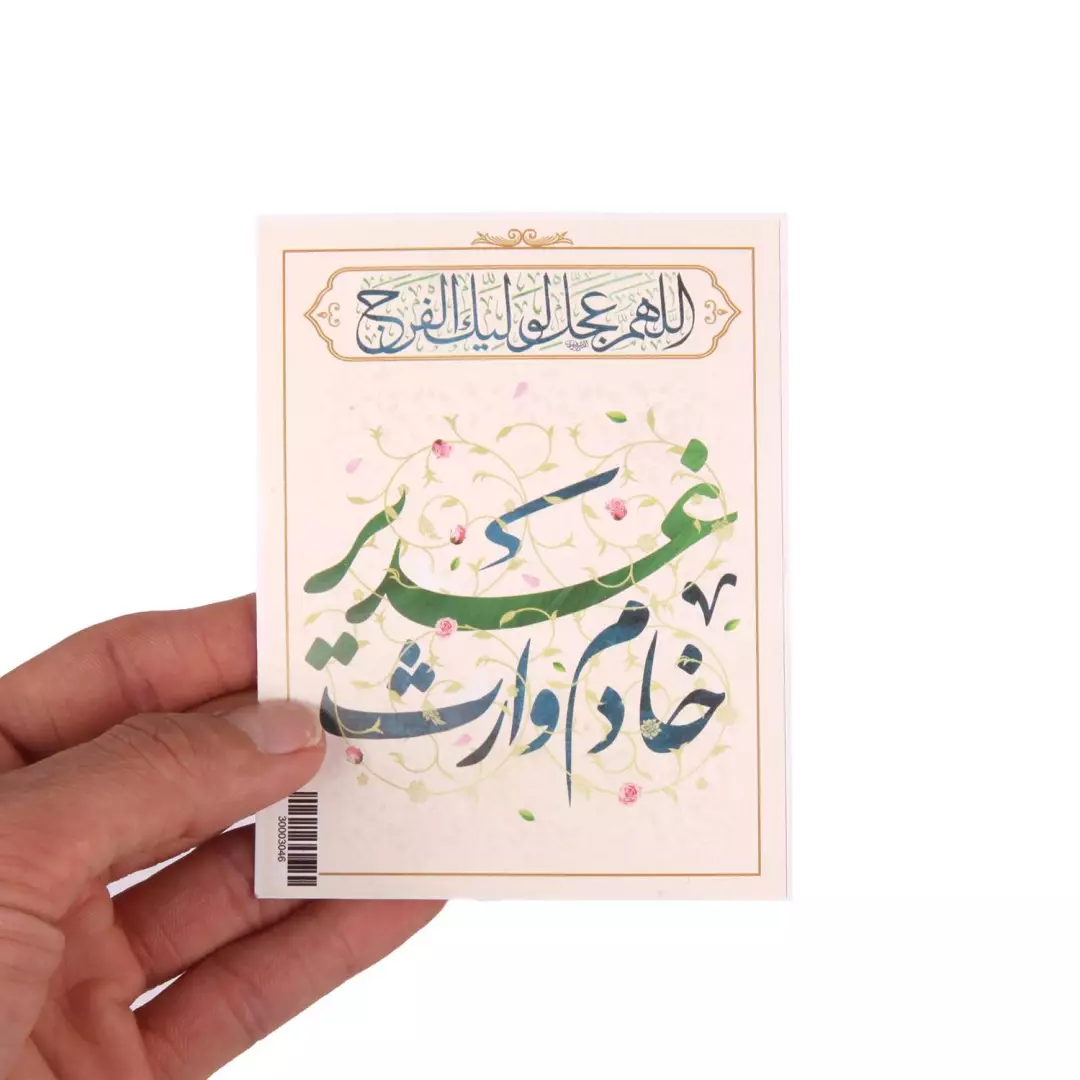 اللهم عجل لولیك الفرج
خادم وارث
غدیر
30003046